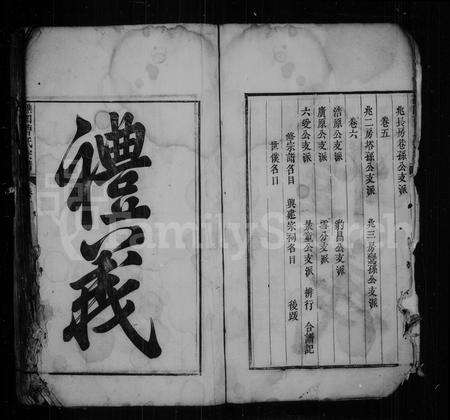 兆長房巷孫公支派
卷五
兆二房塔孫公支派 兆三房鸞孫公支派
卷六
浩原公支派 彭昌公支派
廣原公支派 雪芬公支派
六受公支派 泉重公支派 排行 合譜記
修宗譜名目 興建宗祠名目 後跋
世僕名目
禮義
FamilySearch